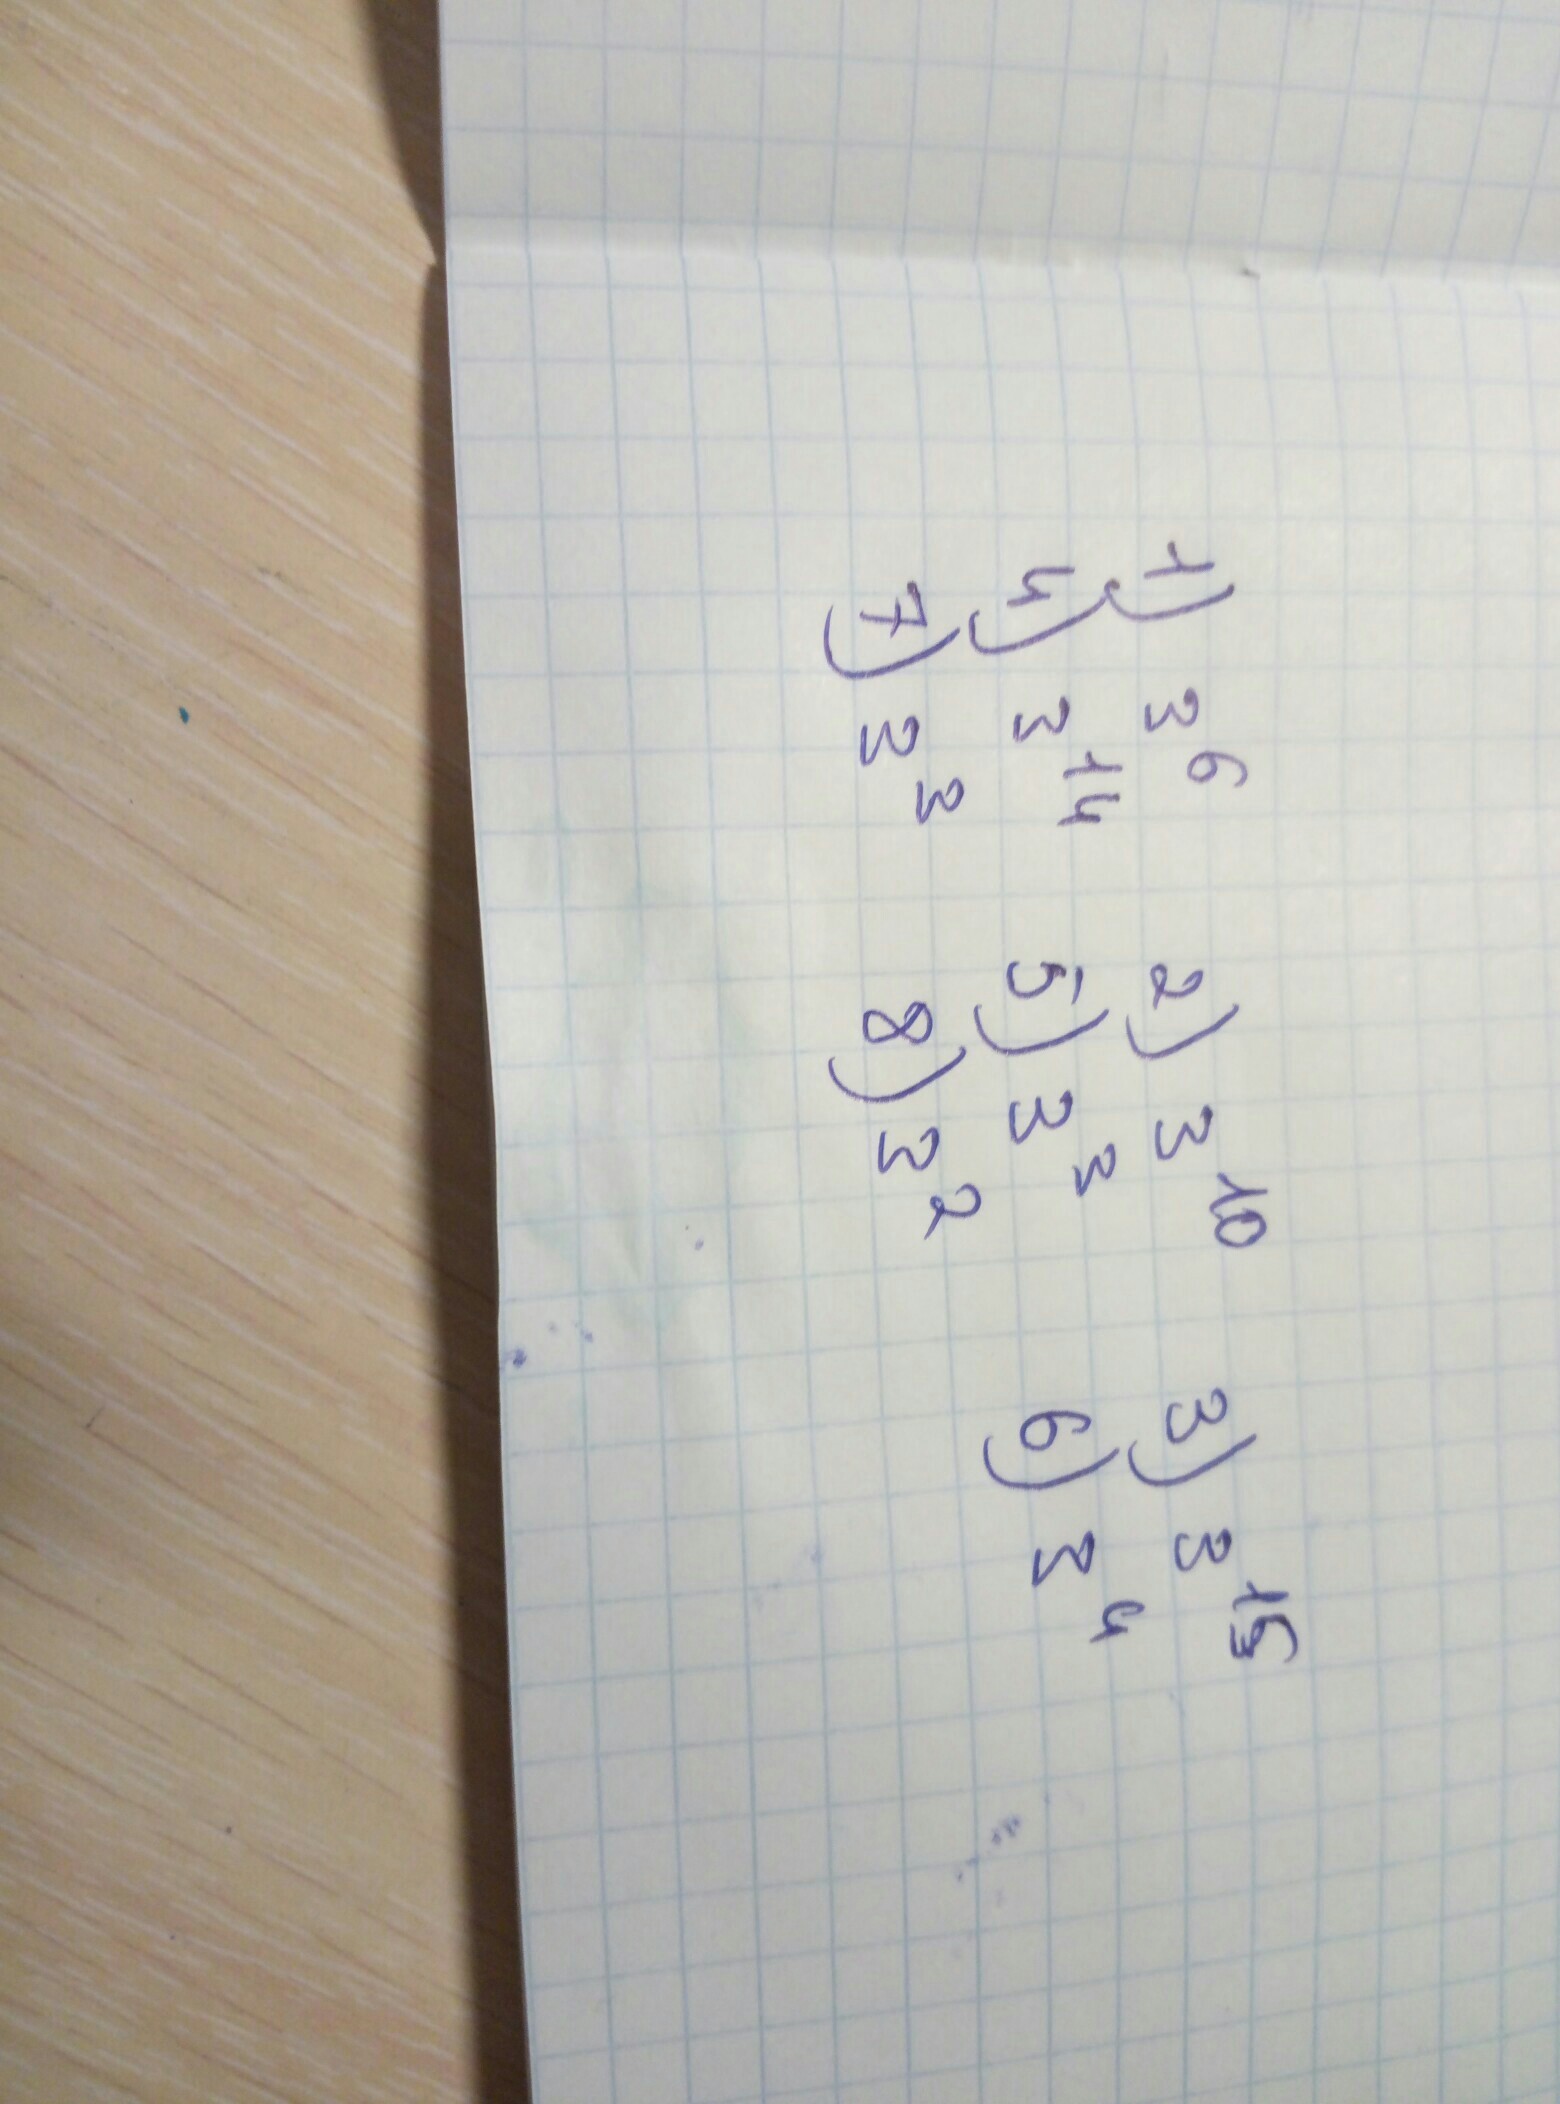 1) 3⁶ 2) 3¹⁰ 3) 3¹⁵
4) 3¹⁴ 5) 3³ 6) 3⁴
7) 3³ 8) 3²